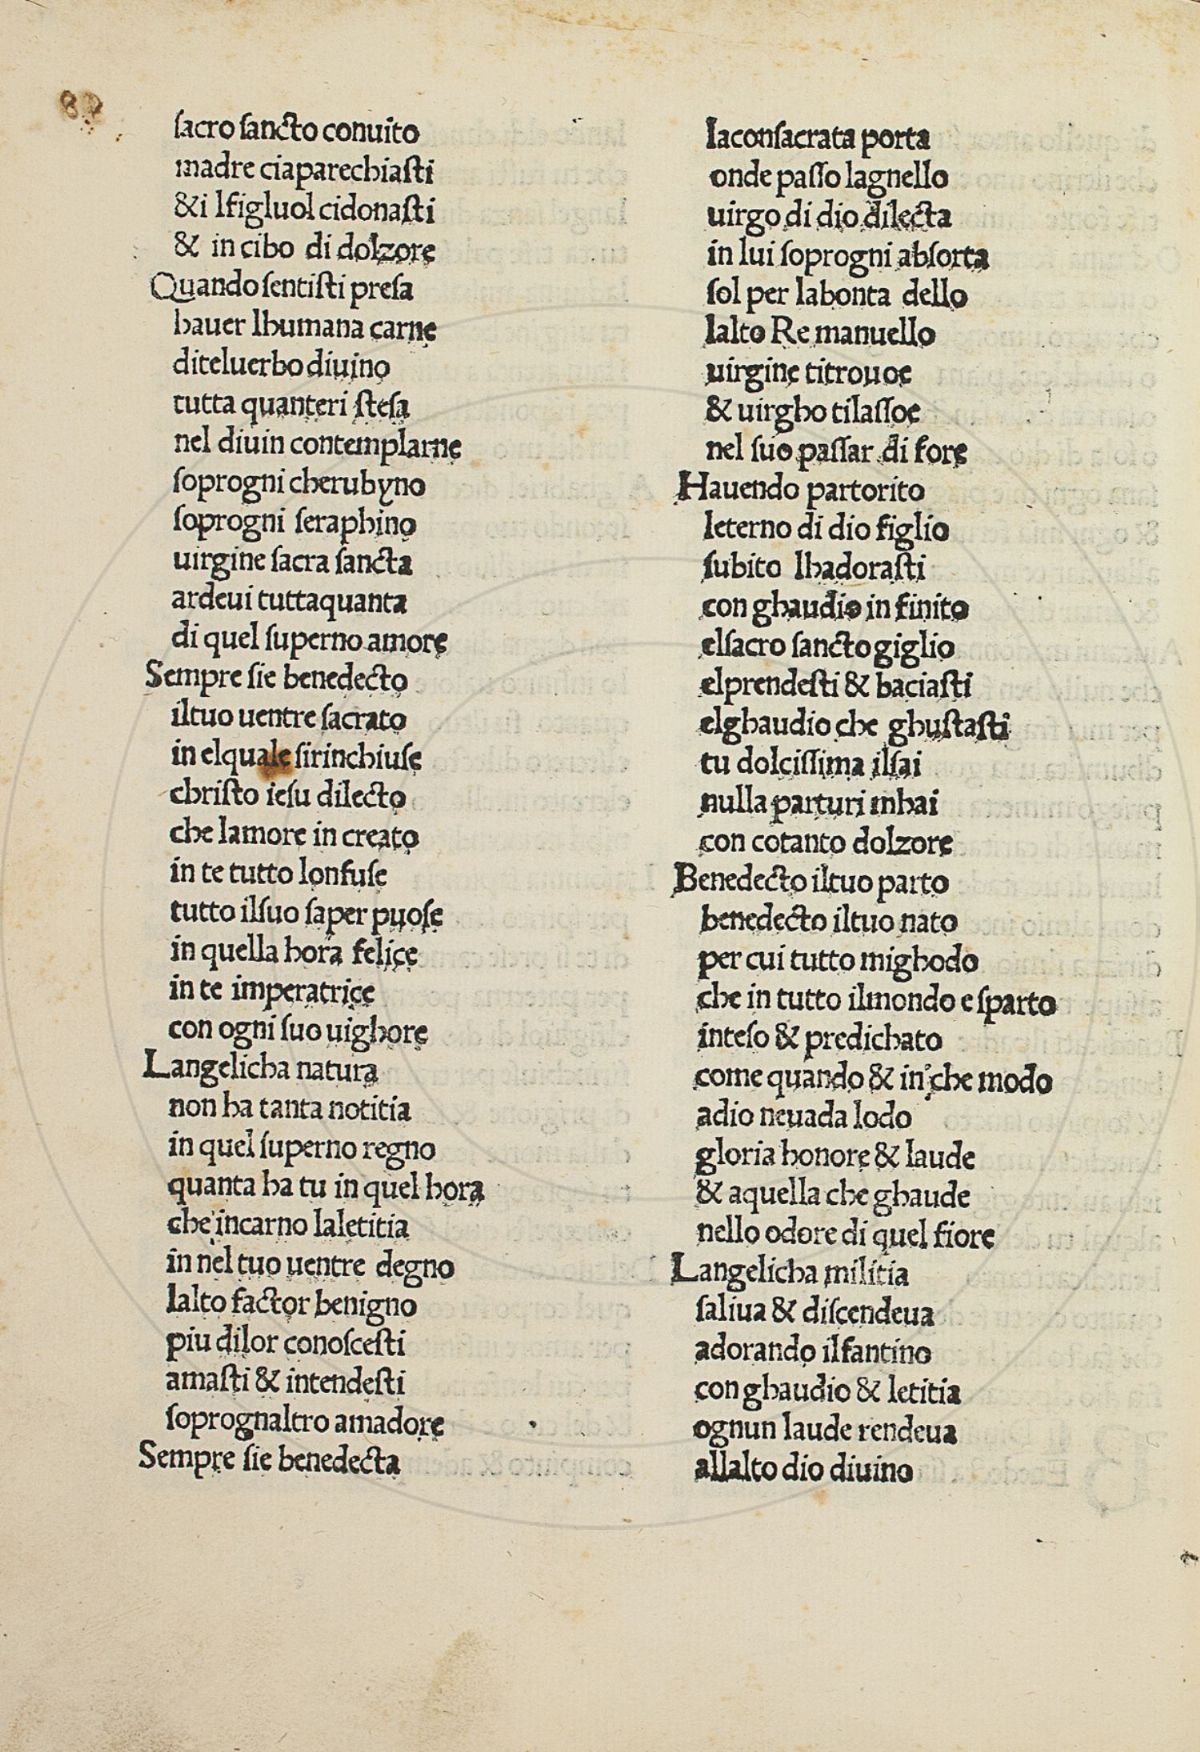 82
ſacro ſancto conuito
madre ciaparechiaſti
&i lfigluol cidonaſti
& in cibo di dolzore
Quando ſentiſti preſa
hauer lhumana carne
diteluerbo diuino
tutta quanteri ſteſa
nel diuin contemplarne
ſoprogni cherubyno
ſoprogni ſeraphino
uirgine ſacra ſancta
ardeui tuttaquanta
di quel ſuperno amore
Sempre ſie benedecto
iltuo uentre ſacrato
in elquale ſirinchiuſe
chriſto ieſu dilecto
che lamore in creato
in te tutto lonfuſe
tutto ilſuo ſaper puoſe
in quella hora felice
in te imperatrice
con ogni ſuo uighore
Langelicha natura
non ha tanta notitia
in quel ſuperno regno
quanta ha tu in quel hora
che incarno laletitia
in nel tuo uentre degno
lalto factor benigno
piu dilor conoſceſti
amaſti & intendeſti
ſoprognaltro amadore
Sempre ſie benedecta
laconſacrata porta
onde paſſo lagnello
uirgo di dio dilecta
in lui ſoprogni abſorta
ſol per labonta dello
lalto Re manuello
uirgine titrouoe
& uirgho tilaſſoe
nel ſuo paſſar di fore
Hauendo partorito
leterno di dio figlio
ſubito lhadoraſti
con ghaudio in finito
elſacro ſancto giglio
elprendeſti & baciaſti
elghaudio che ghuſtaſti
tu dolciſſima ilſai
nulla parturi mhai
con cotanto dolzore
Benedecto iltuo parto
benedecto iltuo nato
per cui tutto mighodo
che in tutto ilmondo e ſparto
inteſo & predichato
come quando & in che modo
adio neuada lodo
gloria honore & laude
& aquella che ghaude
nello odore di quel fiore
Langelicha militia
ſaliua & diſcendeua
adorando ilfantino
con ghaudio & letitia
ognun laude rendeua
allalto dio diuino